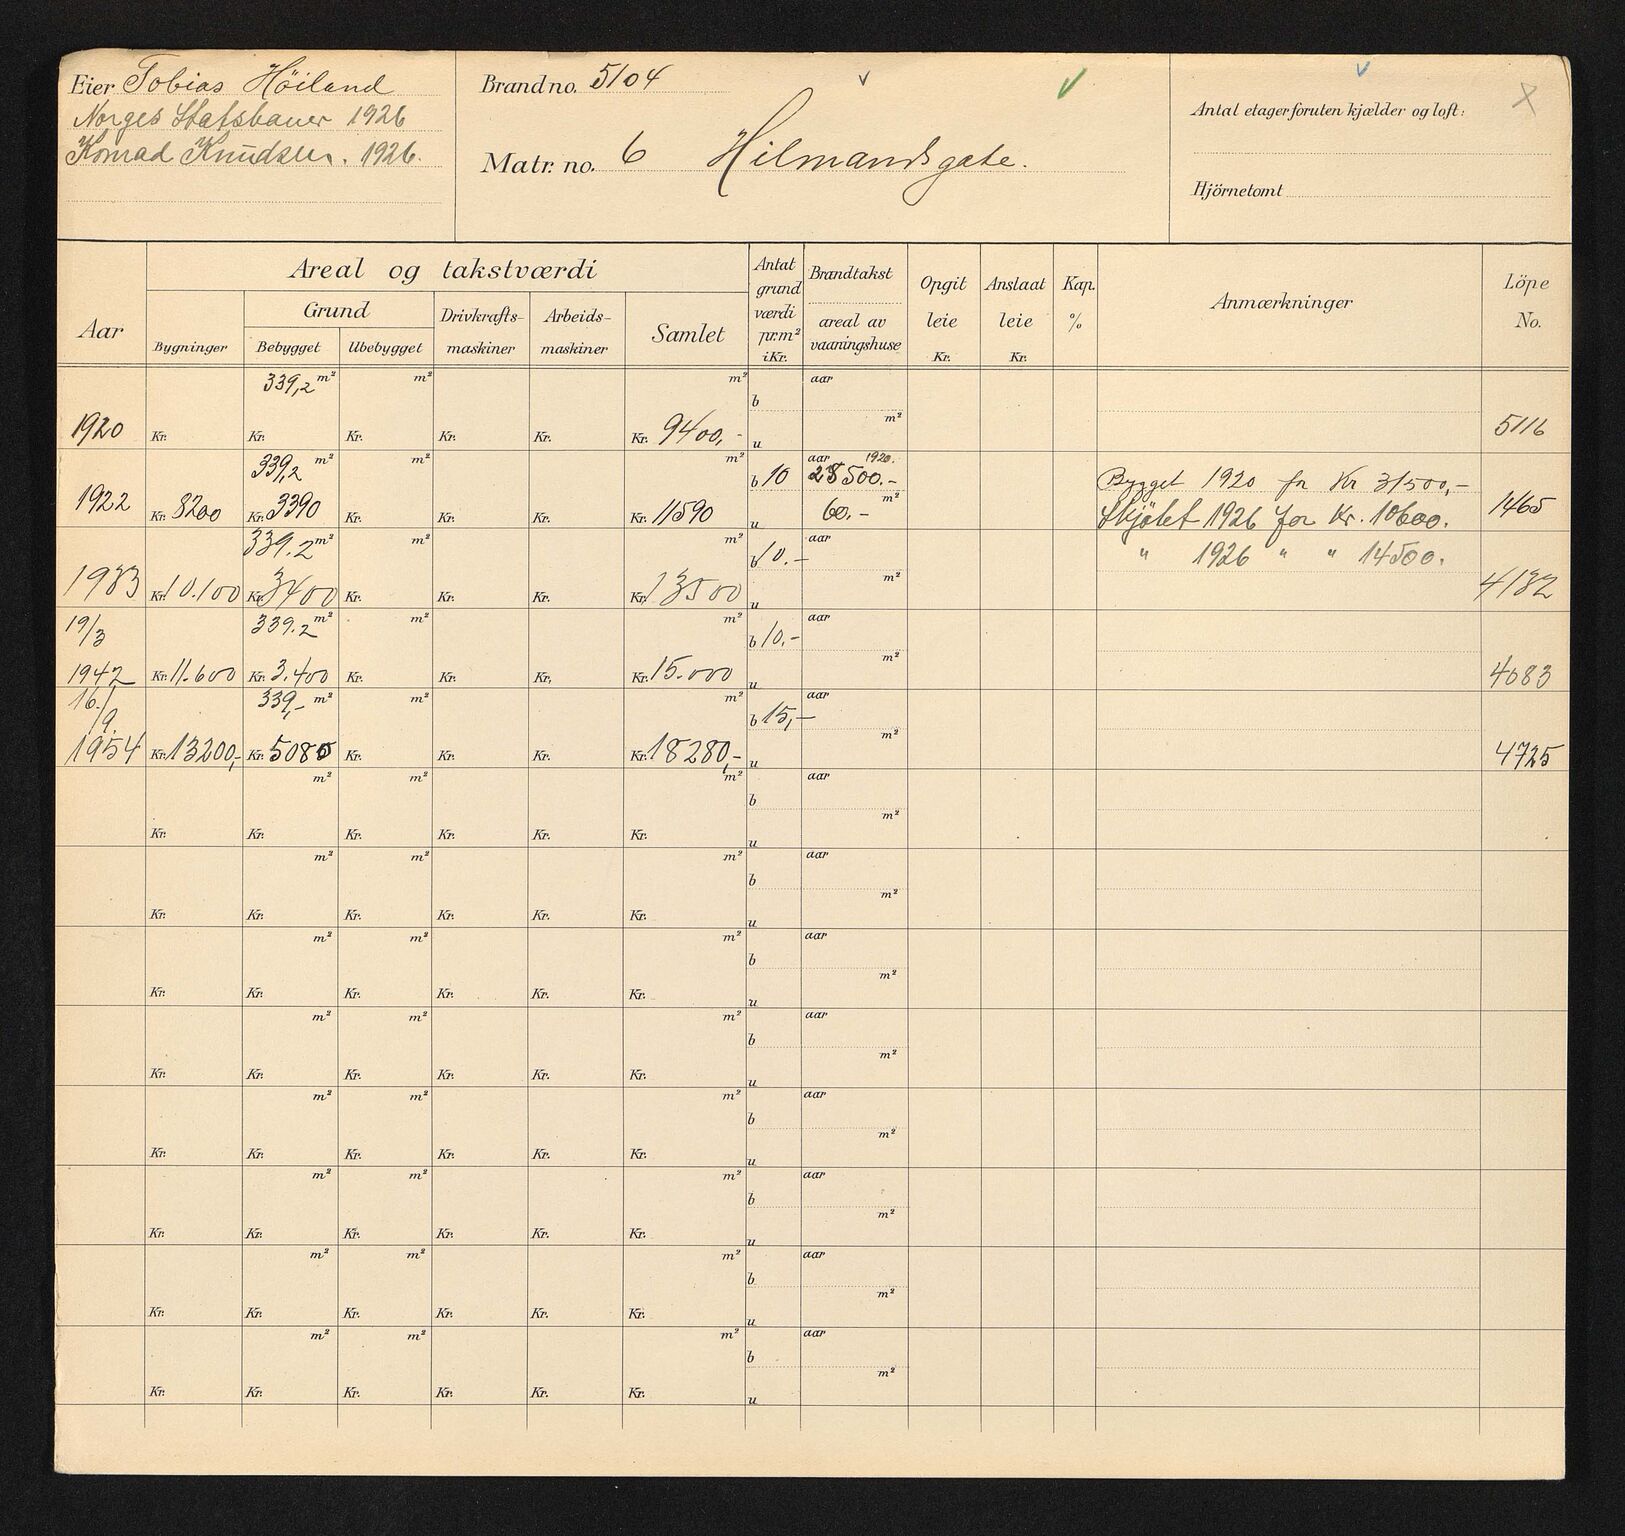 Eier Tobias Höiland
Norges Statsbaner 1926
Konrad Knudsen. 1926.
Brand no. 5104
Matr. no. 6 Hilmandsgate.
Antal etager foruten kjælder og loft:
Hjörnetomt
Aar
Areal og takstværdi
Grund
Bygninger
Bebygget
Ubebygget
Drivkrafts-
maskiner
Arbeids-
maskiner
Samlet
Antat
grund
værdi
pr.m²
i Kr.
Brandtakst
areal av
vaaningshuse
Opgit
leie
Kr.
Anslaat
leie
Kr.
Kap.
%
Anmærkninger
Löpe
No.
339,2 m² m² m² aar
b
m²
1920 Kr. Kr. Kr. Kr. Kr. Kr. 9400,- u 5116
339,2 m² m² m² aar 1920.
b 10 28500.- Bygget 1920 for Kr 31500,-
m²
1922 Kr. 8200 Kr. 3390 Kr. Kr. Kr. Kr. 11590 u 60.- Skjötet 1926 for Kr. 10600. 1465
339.2 m² m² m² aar
b 10.- " 1926 " " 14500.
m²
1933 Kr. 10.100 Kr. 3400 Kr. Kr. Kr. Kr. 13500 u 4132
19/3 339.2 m² m² m² aar
b 10.-
m²
1942 Kr. 11.600 Kr. 3.400 Kr. Kr. Kr. Kr. 15.000 u 4083
16./9. 339,- m² m² m² aar
b 15,-
m²
1954 Kr. 13200,- Kr. 5080 Kr. Kr. Kr. Kr. 18280,- u 4725
m² m² m² aar
b
m²
Kr. Kr. Kr. Kr. Kr. Kr. u
m² m² m² aar
b
m²
Kr. Kr. Kr. Kr. Kr. Kr. u
m² m² m² aar
b
m²
Kr. Kr. Kr. Kr. Kr. Kr. u
m² m² m² aar
b
m²
Kr. Kr. Kr. Kr. Kr. Kr. u
m² m² m² aar
b
m²
Kr. Kr. Kr. Kr. Kr. Kr. u
m² m² m² aar
b
m²
Kr. Kr. Kr. Kr. Kr. Kr. u
m² m² m² aar
b
m²
Kr. Kr. Kr. Kr. Kr. Kr. u
m² m² m² aar
b
m²
Kr. Kr. Kr. Kr. Kr. Kr. u